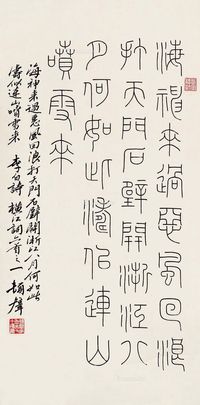 海神來過惡風回浪
打天門石壁開浙江八
月何如此濤似連山
噴雪來
海神來過惡風回浪打天門石壁開浙江八月何如此
濤似連山噴雪來 李白詩 橫江詞六首之一